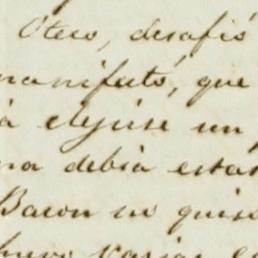 Otero, desafió
manifestó, que
á elejirse un
na debia estar
Bacon no quiso
varias